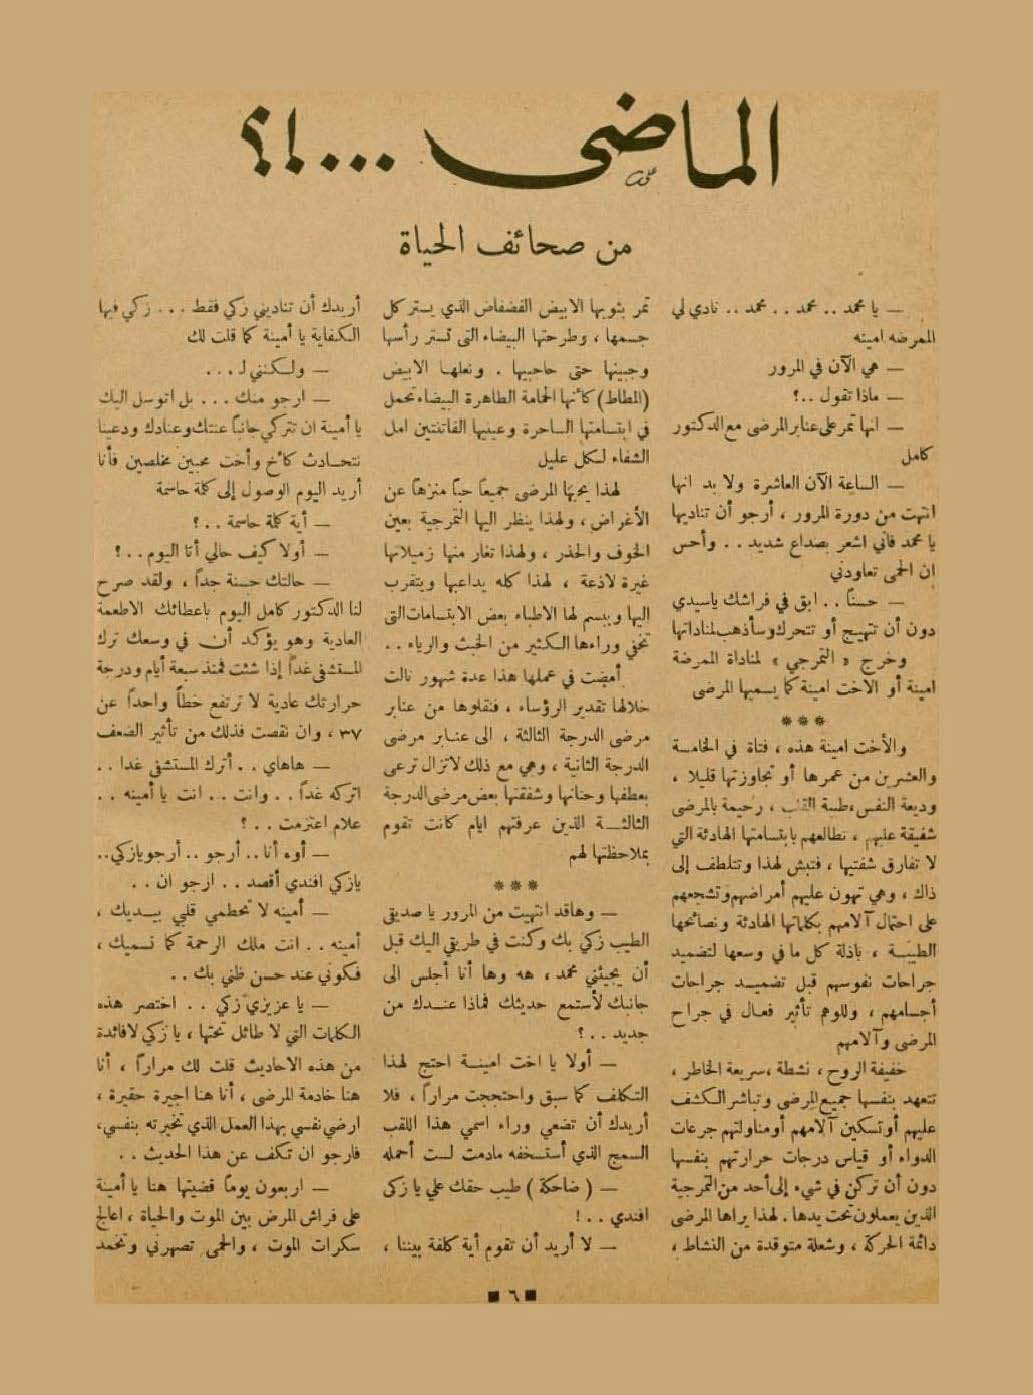 الماضي ...!؟
من صحائف الحياة
— يا محمد .. محمد .. محمد .. نادي لي
الممرضه امينه
— هي الآن في المرور
— ماذا تقول ..؟
— انها تمر على عنابر المرضى مع الدكتور
كامل
— الساعة الآن العاشرة ولا بد انها
انتهت من دورة المرور ، أرجو أن تناديها
يا محمد فاني اشعر بصداع شديد .. وأحس
إن الحمى تعاودني
— حسناً .. ابق في فراشك ياسيدي
دون أن تتهيج أو تتحرك وسأذهب لمناداتها
وخرج « التمرجي » لمناداة الممرضة
امينة أو الاخت امينة كما يسميها المرضى
***
والأخت امينة هذه ، فتاة في الخامسة
والعشرين من عمرها أو تجاوزتها قليلا ،
وديعة النفس ، طيبة القلب ، رحيمة بالمرضى
شفيقة عليهم ، تطالعهم بابتسامتها الهادئة التي
لا تفارق شفتيها ، فتبش لهذا وتتلطف إلى
ذاك ، وهي تهون عليهم أمراضهم وتشجعهم
على احتمال آلامهم بكلماتها الهادئة ونصائحها
الطيبة ، باذلة كل ما في وسعها لتضميد
جراحات نفوسهم قبل تضميد جراحات
أجسامهم ، وللوهم تأثير فعال في جراح
المرضى وآلامهم
خفيفة الروح ، نشطة ، سريعة الخاطر ،
تتعهد بنفسها جميع المرضى وتباشر الكشف
عليهم أو تسكين آلامهم أو مناولتهم جرعات
الدواء أو قياس درجات حرارتهم بنفسها
دون أن تركن في شيء إلى أحد من التمرجية
الذين يعملون تحت يدها . لهذا يراها المرضى
دائمة الحركة ، وشعلة متوقدة من النشاط ،
تمر بثوبها الابيض الفضفاض الذي يستر كل
جسمها ، وطرحتها البيضاء التي تستر رأسها
وجبينها حتى حاجبيها . ونعلها الابيض
(المطاط) كأنها الحمامة الطاهرة البيضاء تحمل
في ابتسامتها الساحرة وعينيها الفاتنتين امل
الشفاء لكل عليل
لهذا يحبها المرضى جميعاً حباً منزهاً عن
الأغراض ، ولهذا ينظر اليها التمرجية بعين
الخوف والحذر ، ولهذا تغار منها زميلاتها
غيرة لاذعة ، لهذا كله يداعبها ويتقرب
اليها ويبسم لها الاطباء بعض الابتسامات التي
تخفي وراءها الكثير من الخبث والرياء ..
أمضت في عملها هذا عدة شهور نالت
خلالها تقدير الرؤساء ، فنقلوها من عنابر
مرضى الدرجة الثالثة ، الى عنابر مرضى
الدرجة الثانية ، وهي مع ذلك لاتزال ترعى
بعطفها وحنانها وشفقتها بعض مرضى الدرجة
الثالثة الذين عرفتهم ايام كانت تقوم
بملاحظتها لهم
***
— وهاقد انتهيت من المرور يا صديقي
الطيب زكي بك وكنت في طريقي اليك قبل
أن يجيئني محمد ، هه وها أنا أجلس الى
جانبك لأستمع حديثك فماذا عندك من
جديد ..؟
— أولا يا اخت امينة احتج لهذا
التكلف كما سبق واحتججت مراراً ، فلا
أريدك أن تضعي وراء اسمي هذا اللقب
السمج الذي أستخفه مادمت لست أحمله
— ( ضاحكة ) طيب حقك علي يا زكي
افندي ..!
— لا أريد أن تقوم أية كلفة بيننا ،
أريدك أن تناديني زكي فقط ... زكي فيها
الكفاية يا أمينة كما قلت لك
— ولكنني لـ ...
— ارجو منك ... بل اتوسل اليك
يا أمينة ان تتركي جانباً عنتك وعنادك ودعينا
نتحادث كأخ وأخت محبين مخلصين فأنا
أريد اليوم الوصول إلى كلمة حاسمة
— أية كلمة حاسمة ..؟
— أولا كيف حالي أنا اليوم ..؟
— حالتك حسنة جداً ، ولقد صرح
لنا الدكتور كامل اليوم باعطائك الاطعمة
العادية وهو يؤكد أن في وسعك ترك
المستشفى غداً إذا شئت فمنذ سبعة أيام ودرجة
حرارتك عادية لا ترتفع خطاً واحداً عن
٣٧ ، وان نقصت فذلك من تأثير الضعف
— هاهاي .. أترك المستشفى غدا ..
اتركه غداً .. وانت .. انت يا أمينه ..
علام اعتزمت ..؟
— أوه أنا .. أرجو .. أرجو يازكي ..
يازكي افندي أقصد .. ارجو ان ..
— أمينه لا تحطمي قلبي بيديك ،
أمينه .. انت ملك الرحمة كما نسميك ،
فكوني عند حسن ظني بك ..
— يا عزيزي زكي .. اختصر هذه
الكلمات التي لا طائل تحتها ، يا زكي لا فائدة
من هذه الاحاديث قلت لك مراراً ، أنا
هنا خادمة المرضى ، أنا هنا اجيرة حقيرة ،
ارضي نفسي بهذا العمل الذي تخيرته بنفسي ،
فارجو ان تكف عن هذا الحديث ..
— اربعون يوماً قضيتها هنا يا أمينة
على فراش المرض بين الموت والحياة ، اعالج
سكرات الموت ، والحمى تصهرني وتخمد
٦